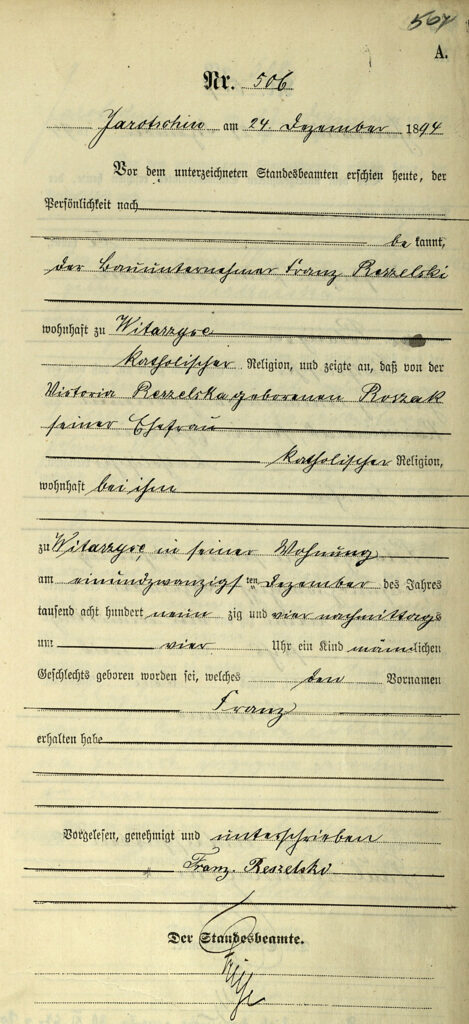 507
A.
Nr. 506
Jarotschin am 24 Dezember 1894
Vor dem unterzeichneten Standesbeamten erschien heute, der
Persönlichkeit nach
be kannt,
der Bauunternehmer Franz Reszelski
wohnhaft zu Witaszyce
katholischer Religion, und zeigte an, daß von der
Victoria Reszelska geborenen Roszak
seiner Ehefrau
katholischer Religion,
wohnhaft bei ihm
zu Witaszyce, in seiner Wohnung
am einundzwanzigs ten Dezember des Jahres
tausend acht hundert neun zig und vier nachmittags
um vier Uhr ein Kind männlichen
Geschlechts geboren worden sei, welches den Vornamen
Franz
erhalten habe
Vorgelesen, genehmigt und unterschrieben
Franz. Reszelski
Der Standesbeamte.